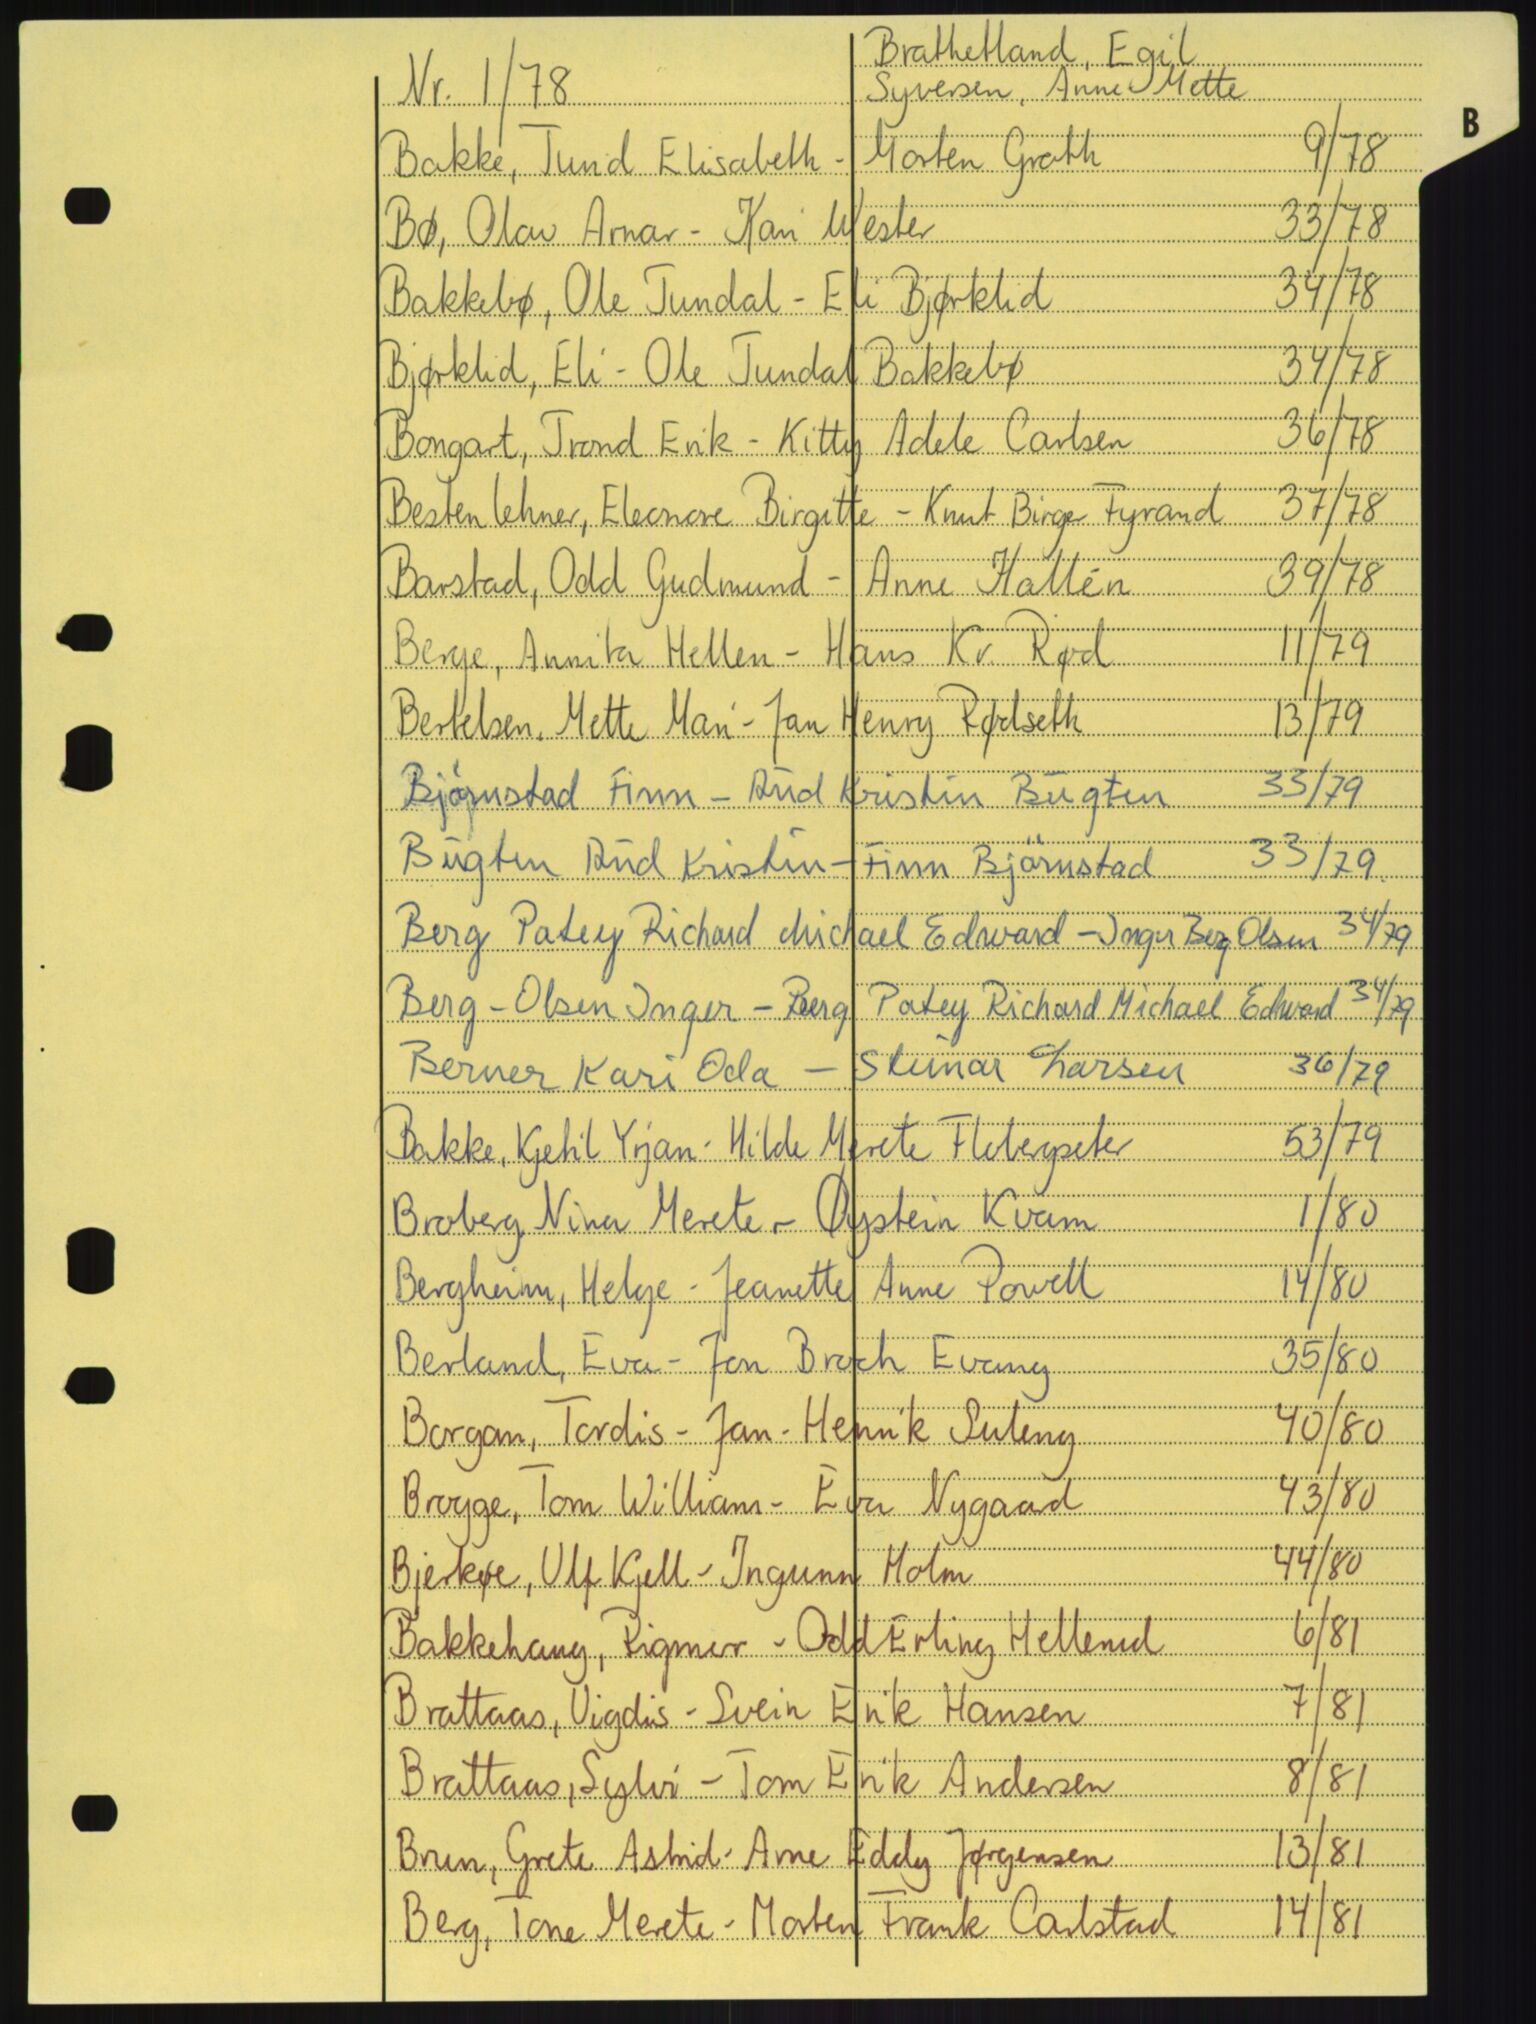 Brathetland, Egil
Nr. 1/78 Syversen, Anne Mette
B
Bakke, Turid Elisabeth - Morten Groth 9/78
Bø, Olav Arnar - Kari Wester 33/78
Bakkebø, Ole Tundal - Eli Bjørklid 34/78
Bjørklid, Eli - Ole Tundal Bakkebø 34/78
Bongart, Trond Erik - Kitty Adele Carlsen 36/78
Bestenlehner, Eleonore Birgitte - Knut Birge Fyrand 37/78
Barstad, Odd Gudmund - Anne Hallén 39/78
Berge, Annita Hellen - Hans Kr. Rød 11/79
Bertelsen, Mette Mari - Jan Henry Rødseth 13/79
Björnstad Finn - Aud Kristin Bugten 33/79
Bugten Aud Kristin - Finn Björnstad 33/79
Berg Patey Richard Michael Edward - Inger Berg Olsen 34/79
Berg - Olsen Inger - Berg Patey Richard Michael Edward 34/79
Berner Kari Oda - Steinar Larsen 36/79
Bakke, Kjetil Yrjan - Hilde Merete Flobergseter 53/79
Broberg, Nina Merete - Øystein Kvam 1/80
Bergheim, Helge - Jeanette Anne Powell 14/80
Berland, Eva - Jon Broch Evang 35/80
Borgan, Tordis - Jan-Henrik Suleng 40/80
Brogge, Tom William - Eva Nygaard 43/80
Bjerkøe, Ulf Kjell - Ingunn Holm 44/80
Bakkehaug, Rigmor - Odd Erling Hellerud 6/81
Brattaas, Vigdis - Svein Erik Hansen 7/81
Brattaas, Sylvi - Tom Erik Andersen 8/81
Brun, Grete Astrid - Arne Eddy Jørgensen 13/81
Berg, Tone Merete - Morten Frank Carlstad 14/81